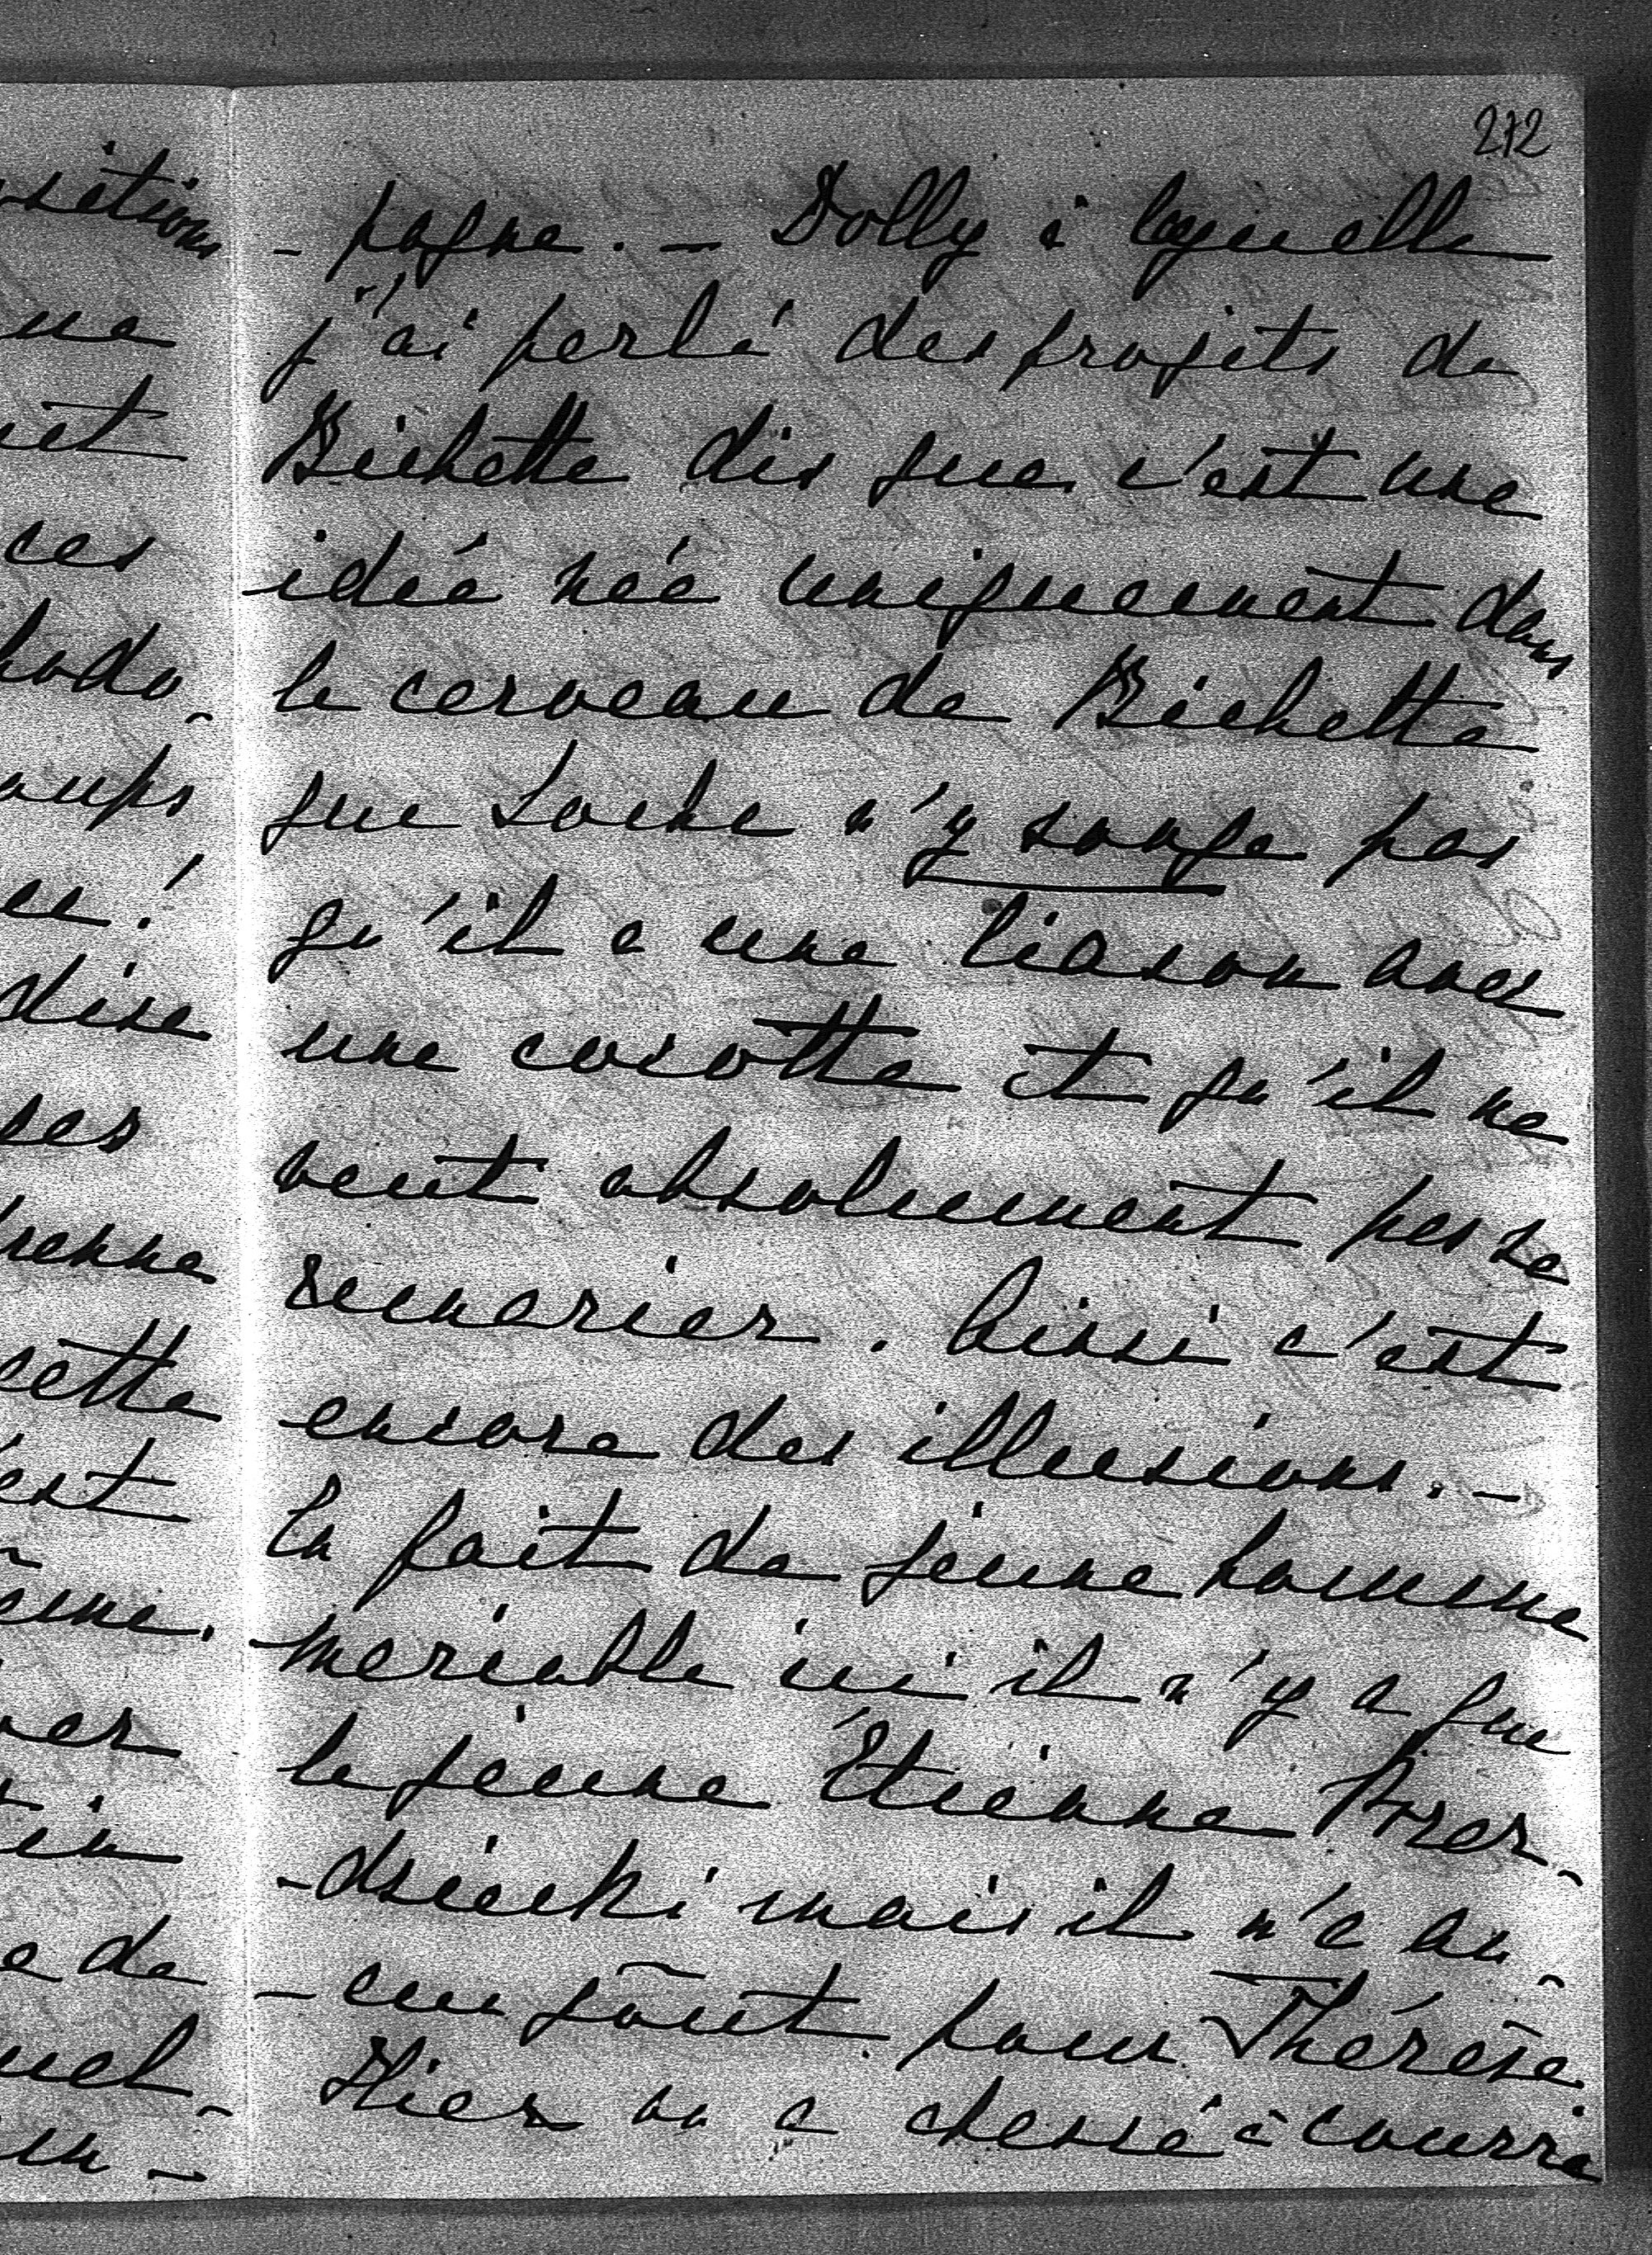 272
- pagne. - Dolly à laquelle
j'ai parlé des projets de
Bichette dis que c'est une
idée née uniquement dans
le cerveau de Bichette
que n'y songe pas
qu'il a une liason avec
une cocotte et qu'il ne
veut absolument pas se
remarier. Ainsi c'est
encore des illusions. -
En fait de jeune homme
mariable ici il n'y a que
le jeune Étienne
mais il n'a au -
- cun goût pour Thérèse
Hier on a chassé à courre